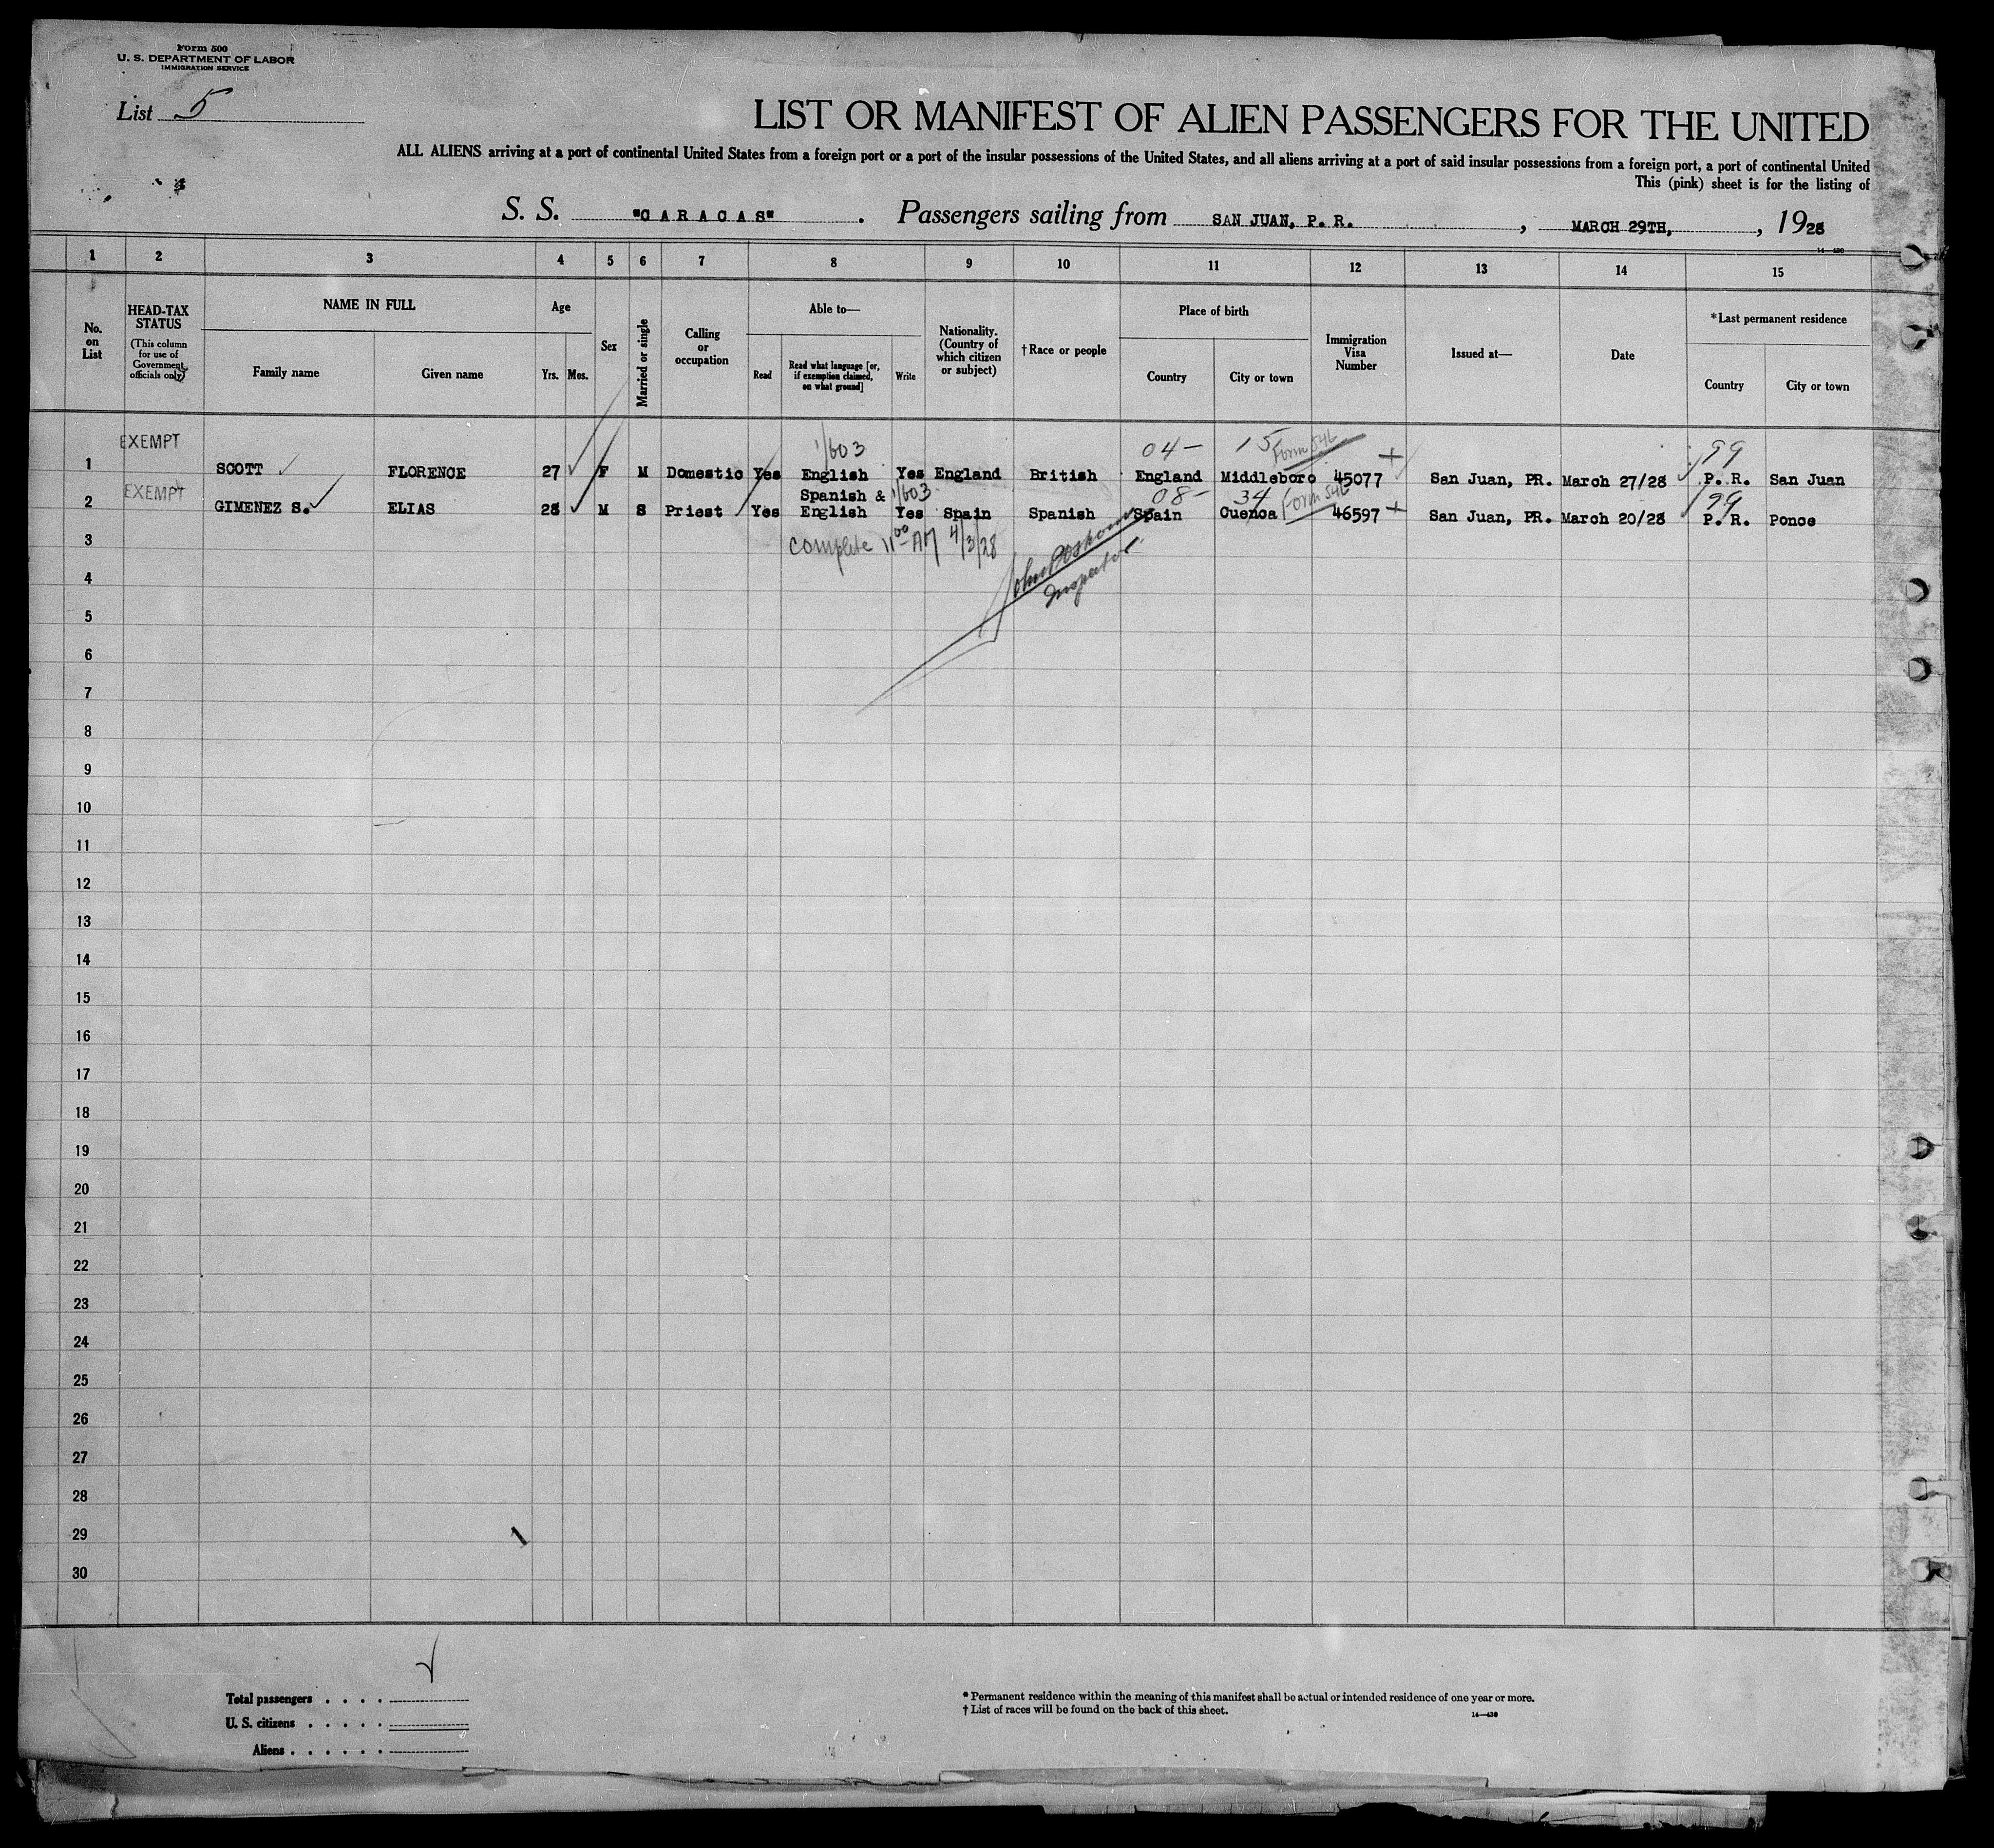 Form 500
U. S. DEPARTMENT OF LABOR
IMMIGRATION SERVICE
List 5
LIST OR MANIFEST OF ALIEN PASSENGERS FOR THE UNITED
ALL ALIENS arriving at a port of continental United States from a foreign port or a port of the insular possessions of the United States, and all aliens arriving at a port of said insular possessions from a foreign port, a port of continental United
This (pink) sheet is for the listing of
S. S. "CARACAS". Passengers sailing from SAN JUAN, P. R., MARCH 29TH, , 1928
14—430
1 2 3 4 5 6 7 8 9 10 11 12 13 14 15
No. on List
HEAD-TAX STATUS
(This column for use of Government officials only)
NAME IN FULL
Family name Given name
Age
Yrs. Mos.
Sex
Married or single
Calling or occupation
Able to—
Read
Read what language [or, if exemption claimed, on what ground]
Write
Nationality. (Country of which citizen or subject)
†Race or people
Place of birth
Country City or town
Immigration Visa Number
Issued at—
Date
*Last permanent residence
Country City or town
EXEMPT 1/603 04- 15 Form 546 + 99
1 SCOTT FLORENCE 27 F M Domestic Yes English Yes England British England Middleboro 45077 San Juan, PR. March 27/28 P. R. San Juan
EXEMPT Spanish & 1/603 08- 34 Form 546 99
2 GIMENEZ S. ELIAS 28 M S Priest Yes English Yes Spain Spanish Spain Cuenca 46597 + San Juan, PR. March 20/28 P. R. Ponce
3 Complete 11 00 AM 4/3/28
John Osborn
Inspector
4
5
6
7
8
9
10
11
12
13
14
15
16
17
18
19
20
21
22
23
24
25
26
27
28
29
30
Total passengers . . . .
U. S. citizens . . . . .
Aliens . . . . . .
* Permanent residence within the meaning of this manifest shall be actual or intended residence of one year or more.
† List of races will be found on the back of this sheet.
14—430